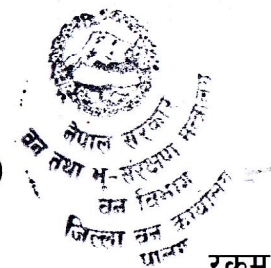 नेपाल सरकार
वन तथा भू-संरक्षण मन्त्रालय
वन विभाग
जिल्ला वन कार्यालय
पाल्पा
रकम